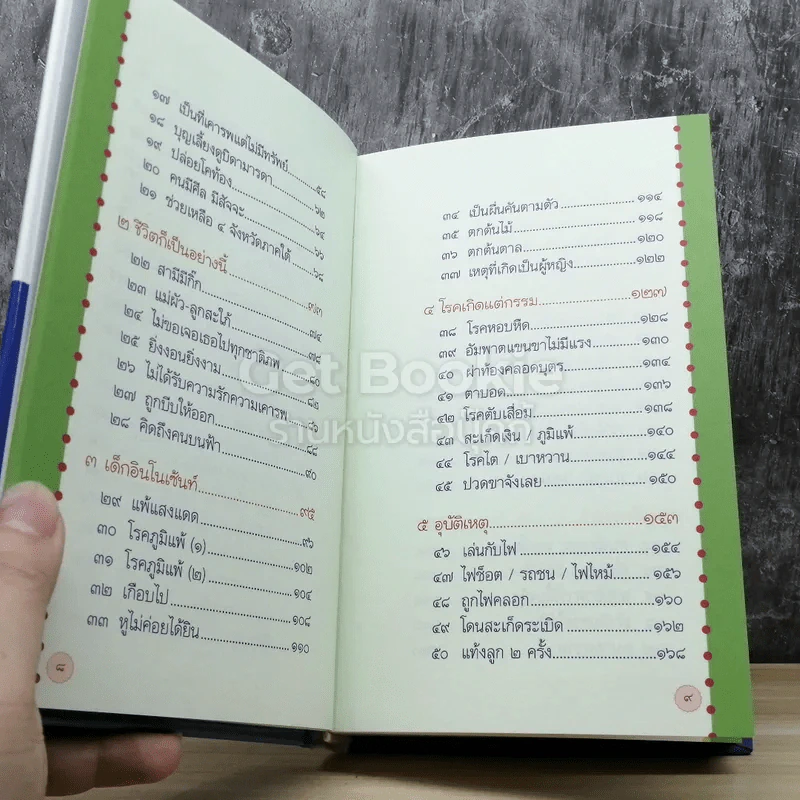 ๑๗ เป็นที่เคารพแต่ไม่มีทรัพย์
๑๘ บุญเลี้ยงดูบิดามารดา.....๕๘
๑๙ ปล่อยโคท้อง.....๖๒
๒๐ คนมีศีล มีสัจจะ.....๖๖
๒๑ ช่วยเหลือ ๔ จังหวัดภาคใต้.....๖๘
๒ ชีวิตก็เป็นอย่างนี้.....๗๓
๒๒ สามีมีกิ๊ก.....๗๔
๒๓ แม่ผัว-ลูกสะใภ้.....๗๘
๒๔ ไม่ขอเจอเธอไปทุกชาติภพ.....๘๐
๒๕ ยิ่งงอนยิ่งงาม.....๘๒
๒๖ ไม่ได้รับความรักความเคารพ.....๘๖
๒๗ ถูกบีบให้ออก.....๘๘
๒๘ คิดถึงคนบนฟ้า.....๙๐
๓ เด็กอินโนเซ้นท์.....๙๕
๒๙ แพ้แสงแดด.....๙๖
๓๐ โรคภูมิแพ้ (๑).....๑๐๒
๓๑ โรคภูมิแพ้ (๒).....๑๐๔
๓๒ เกือบไป.....๑๐๘
๓๓ หูไม่ค่อยได้ยิน.....๑๑๐
๘
๓๔ เป็นผื่นคันตามตัว.....๑๑๔
๓๕ ตกต้นไม้.....๑๑๘
๓๖ ตกต้นตาล.....๑๒๐
๓๗ เหตุที่เกิดเป็นผู้หญิง.....๑๒๒
๔ โรคเกิดแต่กรรม.....๑๒๗
๓๘ โรคหอบหืด.....๑๒๘
๓๙ อัมพาตแขนขาไม่มีแรง.....๑๓๐
๔๐ ผ่าท้องคลอดบุตร.....๑๓๔
๔๑ ตาบอด.....๑๓๖
๔๒ โรคตับเสื่อม.....๑๓๘
๔๓ สะเก็ดเงิน / ภูมิแพ้.....๑๔๐
๔๔ โรคไต / เบาหวาน.....๑๔๔
๔๕ ปวดขาจังเลย.....๑๕๐
๕ อุบัติเหตุ.....๑๕๓
๔๖ เล่นกับไฟ.....๑๕๔
๔๗ ไฟช็อต / รถชน / ไฟไหม้.....๑๕๖
๔๘ ถูกไฟคลอก.....๑๖๐
๔๙ โดนสะเก็ดระเบิด.....๑๖๒
๕๐ แท้งลูก ๒ ครั้ง.....๑๖๘
๙
Get Bookie
ร้านหนังสือเก็ต